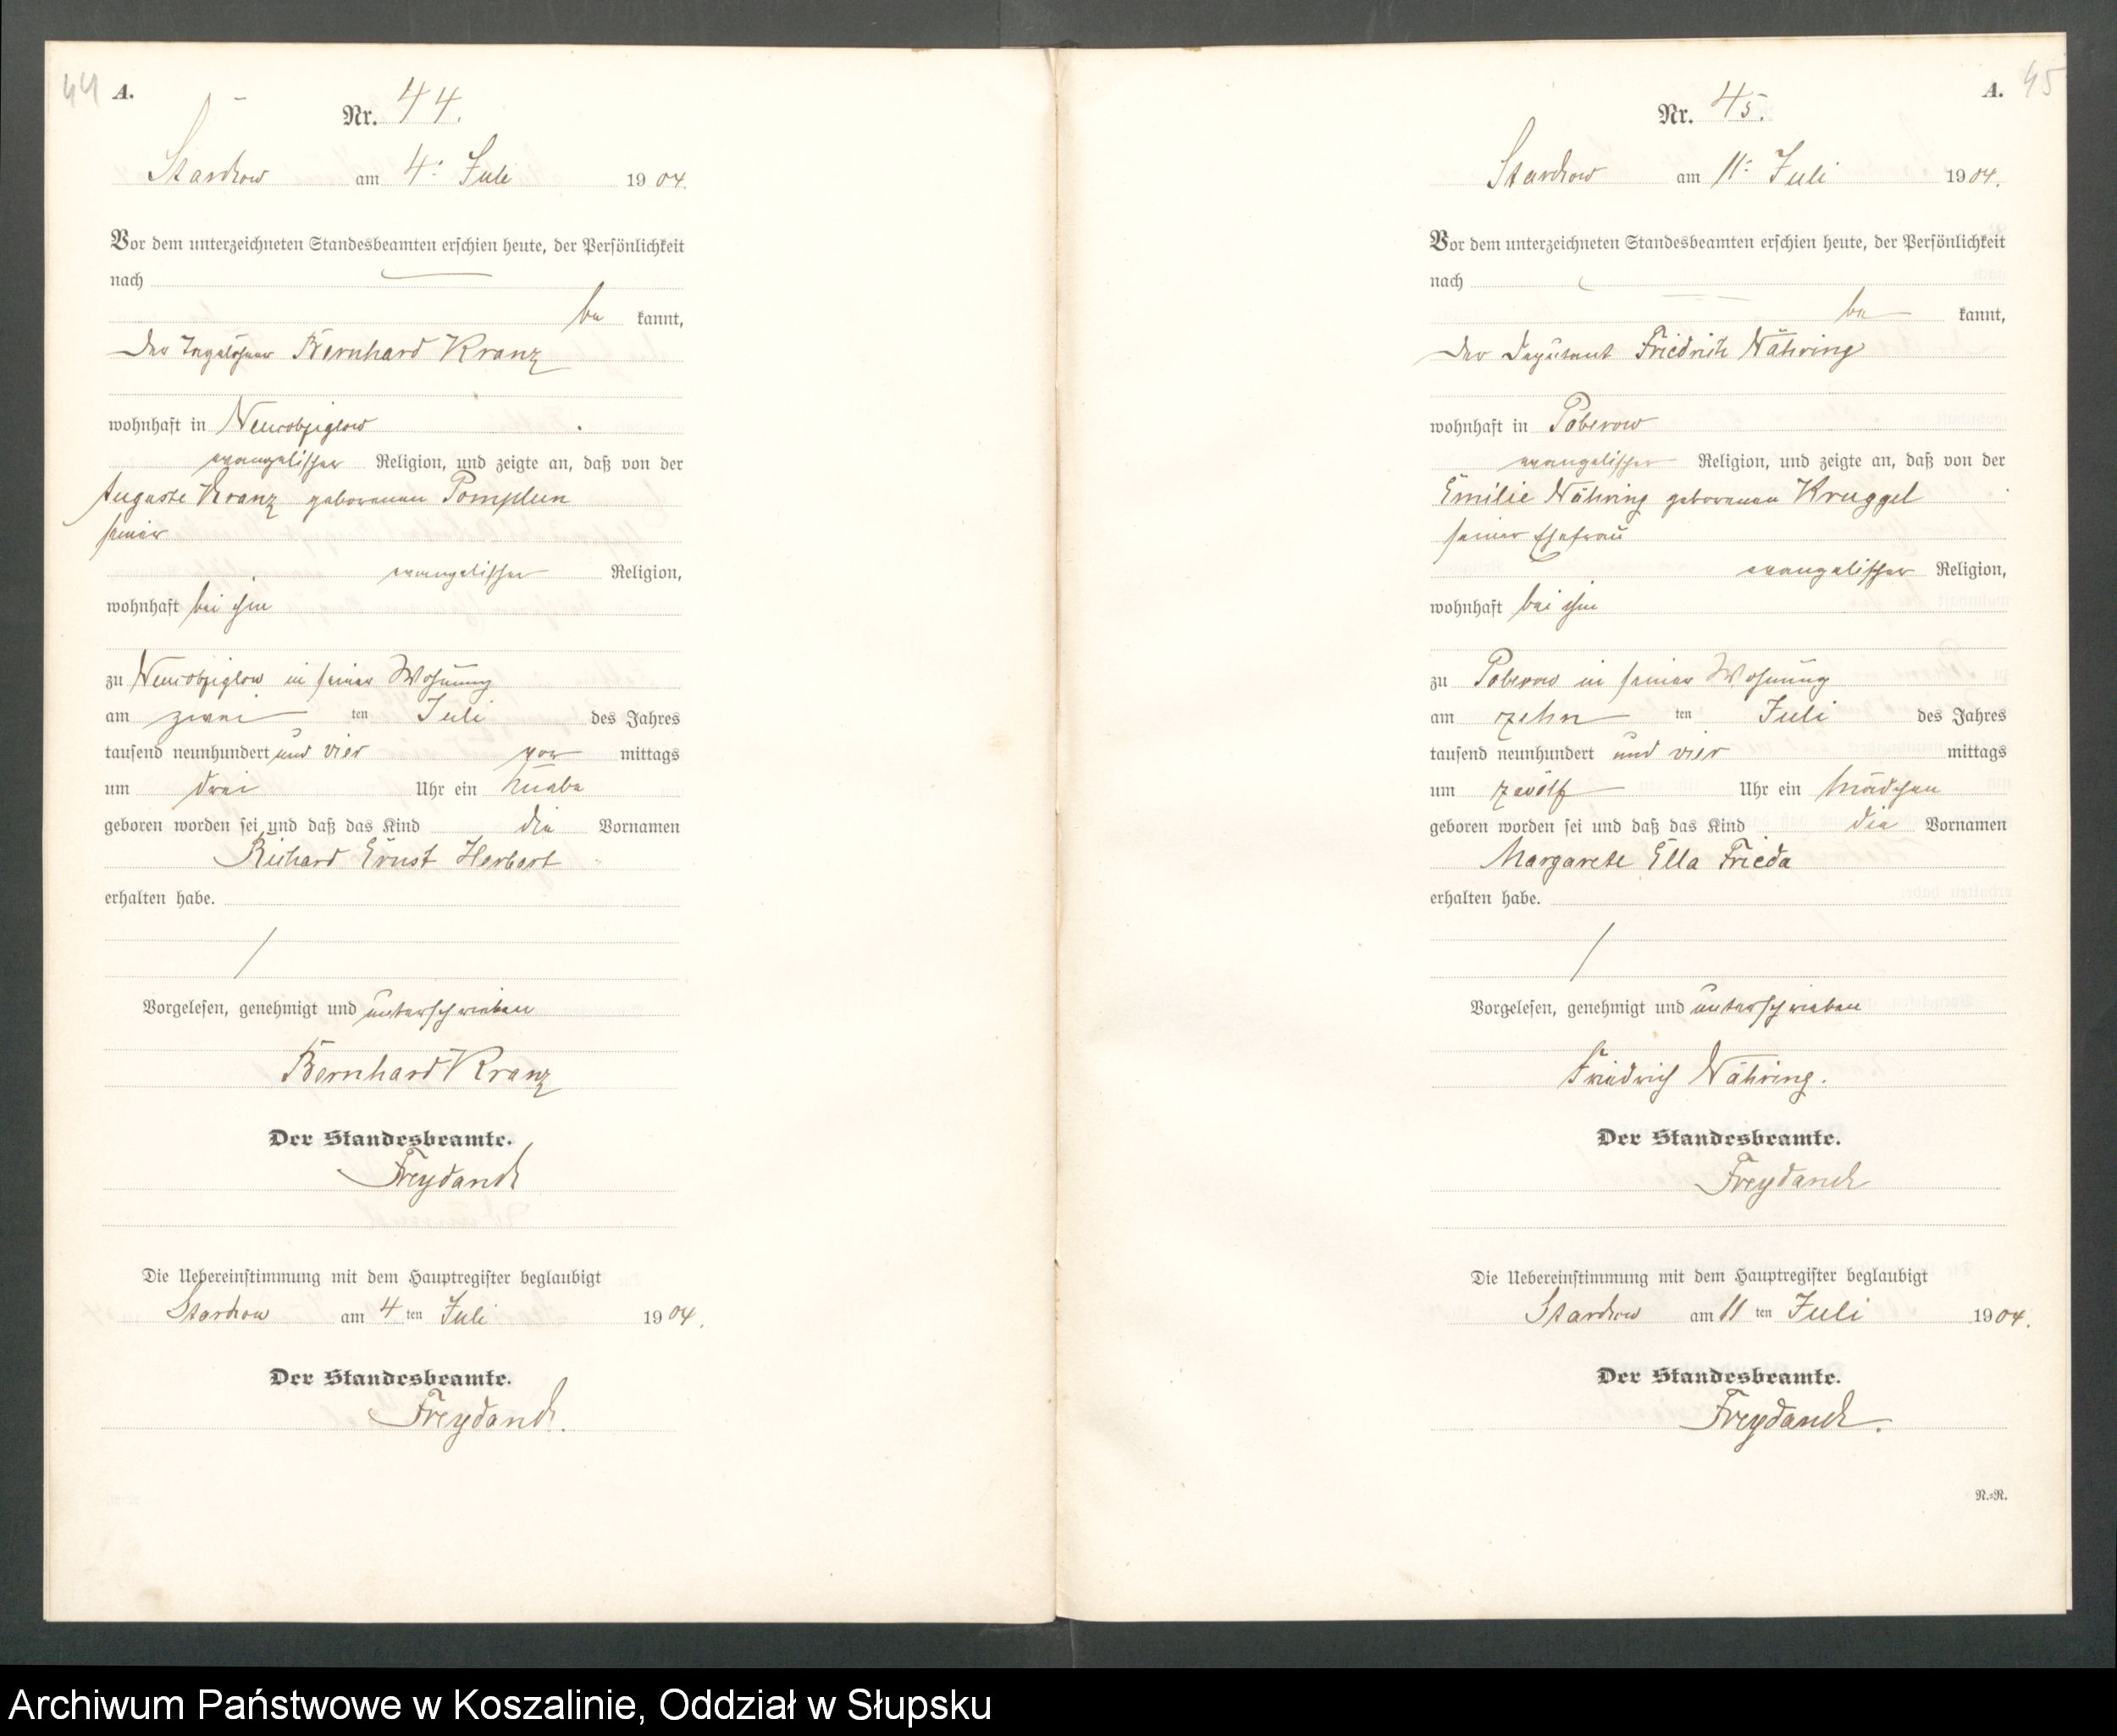 44 A.
Nr. 44.
Starkow am 4. Juli 1904.
Vor dem unterzeichneten Standesbeamten erschien heute, der Persönlichkeit
nach
be kannt,
der Tagelöhner Bernhard Kranz
wohnhaft in
evangelischer Religion, und zeigte an, daß von der
Auguste Kranz geborenen Pomplun
seiner
evangelischer Religion,
wohnhaft bei ihm
zu in seiner Wohnung
am zwei ten Juli des Jahres
tausend neunhundert und vier vor mittags
um drei Uhr ein Knabe
geboren worden sei und daß das Kind die Vornamen
Richard Ernst Herbert
erhalten habe.
Vorgelesen, genehmigt und unterschrieben
Bernhard Kranz
Der Standesbeamte.
Freydanck
Die Uebereinstimmung mit dem Hauptregister beglaubigt
Starkow am 4 ten Juli 1904.
Der Standesbeamte.
Freydanck.
A. 45
Nr. 45.
Starkow am 11. Juli 1904.
Vor dem unterzeichneten Standesbeamten erschien heute, der Persönlichkeit
nach
be kannt,
der Deputant Friedrich Nähring
wohnhaft in Poberow
evangelischer Religion, und zeigte an, daß von der
Emilie Nähring geborenen Kruggel
seiner Ehefrau
evangelischer Religion,
wohnhaft bei ihm
zu Poberow in seiner Wohnung
am zehn ten Juli des Jahres
tausend neunhundert und vier mittags
um zwölf Uhr ein Mädchen
geboren worden sei und daß das Kind die Vornamen
Margarete Ella Frieda
erhalten habe.
Vorgelesen, genehmigt und unterschrieben
Friedrich Nähring.
Der Standesbeamte.
Freydanck
Die Uebereinstimmung mit dem Hauptregister beglaubigt
Starkow am 11 ten Juli 1904.
Der Standesbeamte.
Freydanck.
N.=R.
Archiwum Państwowe w Koszalinie, Oddział w Słupsku